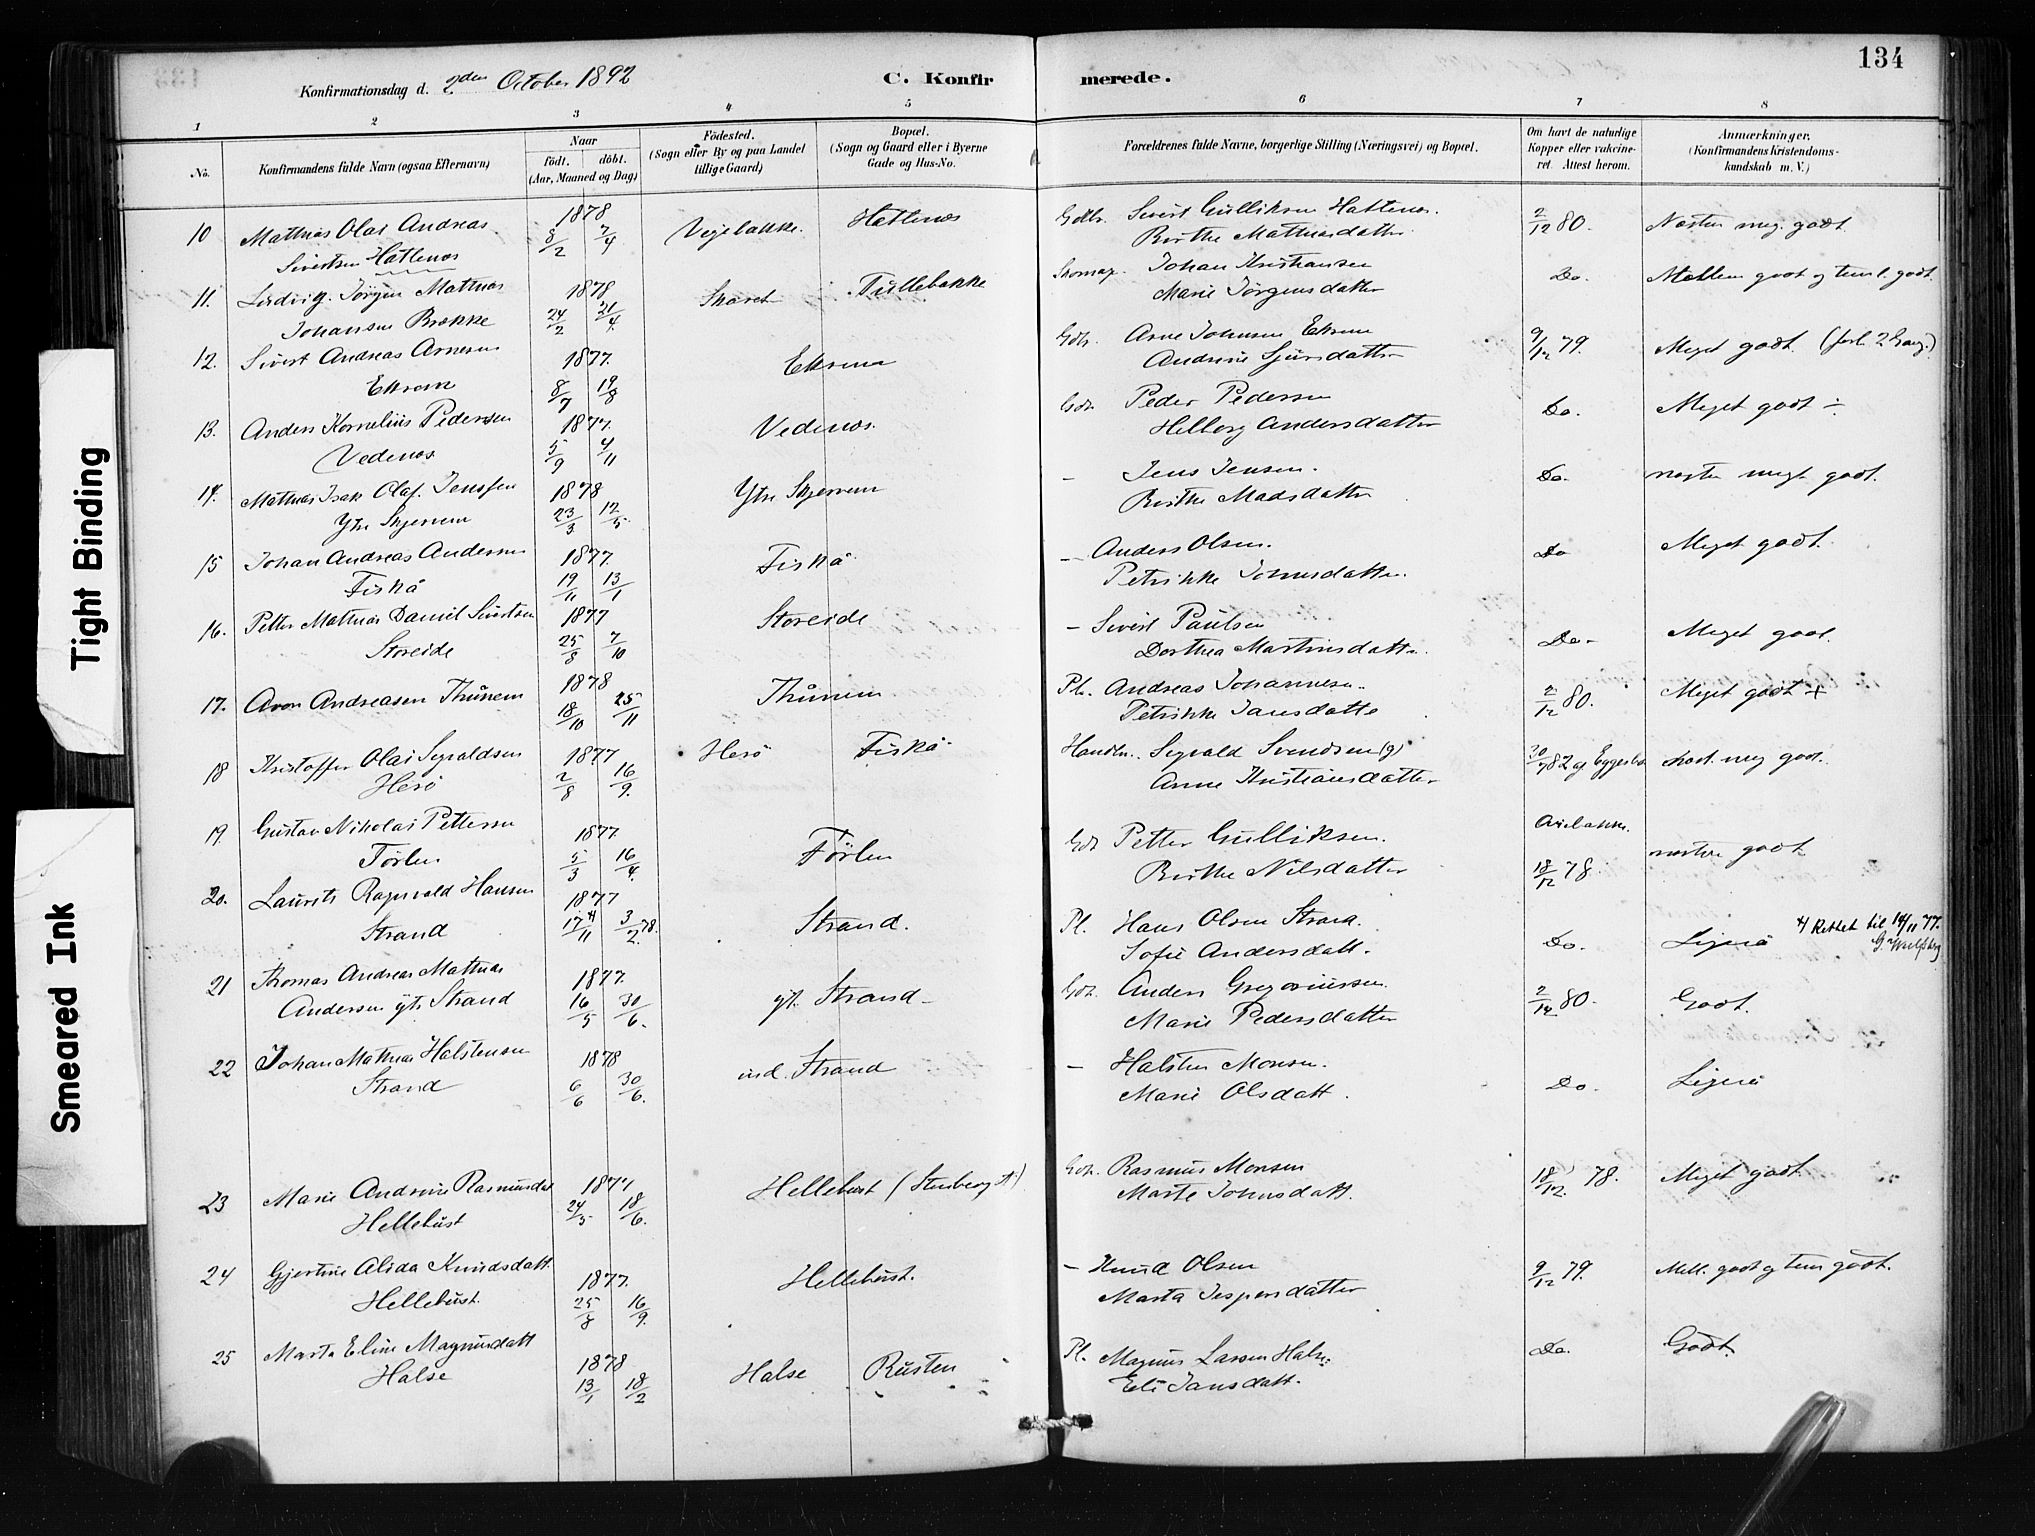 134
Konfirmationsdag d. 2den October 1892
C. Konfirmerede.
1 2 3 4 5 6 7 8
No.
Konfirmandens fulde Navn (ogsaa Efternavn)
Naar
födt. döbt.
(Aar, Maaned og Dag)
Födested.
(Sogn eller By og paa Landet
tillige Gaard)
Bopæl.
(Sogn og Gaard eller i Byerne
Gade og Hus-No.
Forældrenes fulde Navne, borgerlige Stilling (Næringsvei) og Bopæl.
Om havt de naturlige
Kopper eller vakcine-
ret. Attest herom.
Anmærkninger.
(Konfirmandens Kristendoms-
kundskab m. V.)
10 Mathias Olai Andreas 1878 Hatlenæs Gdbr. Sivert Gulliksen Hatlenæs.
Sivertsen Hatlenæs 8/2 7/4 Vejebakke. Birthe Mathiasdatter 2/12 80. Næsten meg. godt
11. Ludvig Jörgen Mathias 1878 Skaret Tullebakke Johan Kristiansen Do. Mellem godt og teml. godt.
Johansen Brække 24/2 21/4 Marie Jörgensdatter
12. Sivert Andreas Arnesen 1877. Ekrem Gdbr. Arne Johnsen Ekrem 9/12 79. Meget godt. (forl. 2 Gang.)
Ekrem 8/7 19/8 Andrine Sjursdatter
13. Anders Kornelius Pedersen 1877. Vedenæs. Gdr. Peder Pedersen Do. Meget godt ÷
Vedenæs 5/9 4/11 Helberg Andersdatter
14. Mathias Isak Olaf Jenssen 1878 Ytre Skjervem - Jens Jensen. Do. næsten meget godt.
Ytre Skjervem 23/3 12/5 Birthe Madsdatter
15 Johan Andreas Andersen 1877. Fiskå - Anders Olsen. Do Meget godt.
Fiskå 19/11 13/1 Petrikke Johnsdatter.
16. Petter Mathias Daniel Sivertsen 1877 Storeide - Sivert Paulsen Do - Meget godt.
Storeide 25/8 7/10 Dorthea Martinsdatter.
17. Aron Andreasen Thunem 1878 Thunem Pl. Andreas Johannesen. 2/12 80. Meget godt +
18/10 25/11 Petrikke Jansdatter
18 Kristoffer Olai Sigvaldsen 1877 Herö Fiskå Handlm. Sigvald Svendsen (g) 30/7 82 meg godt.
Herö 2/8 16/9. Anne Kristiansdatter
19. Gustav Nikolai Pettersen 1877. Förlen Gdr Petter Gulliksen. næsten godt
Förlen 5/3 16/4. Birthe Nilsdatter 18/12 78.
20. Laurits Ragnvald Hansen 1877 Strand. Pl. Hans Olsen Strand. Do. Ligeså x) Rettet til 14/11 77.
Strand 17/11 3/2 78. Sofie Andersdatt.
21 Thomas Andreas Mathias 1877. yt. Strand - Gdr. Anders Gregoriussen. 2/12 80. Godt.
Andersen ytr. Strand 16/5 30/6. Marie Pedersdatter
22 Johan Mathias Halstensen 1878 ind. Strand - Halsten Monsen. Do. Ligeså
Strand 6/6 30/6. Marie Olsdatt.
23 Marie Andrine Rasmusdat 1877 Hellebust Gdr. Rasmus Monsen 18/12. 78. Meget godt.
Hellebust 24/5 18/6. Marte Johnsdatt.
24 Gjertine Alida Knudsdatt. 1877. Hellebust. - Knud Olsen 9/12 79. Mell. godt og tem godt.
Hellebust. 25/8 16/9. Marta Jespersdatter
25 Marta Eline Magnusdatt 1878 Halse Rusten Pl. Magnus Larsen Halse Do. Godt.
Halse 13/1 18/2 Eli Jansdatt.
Tight Binding
Smeared Ink